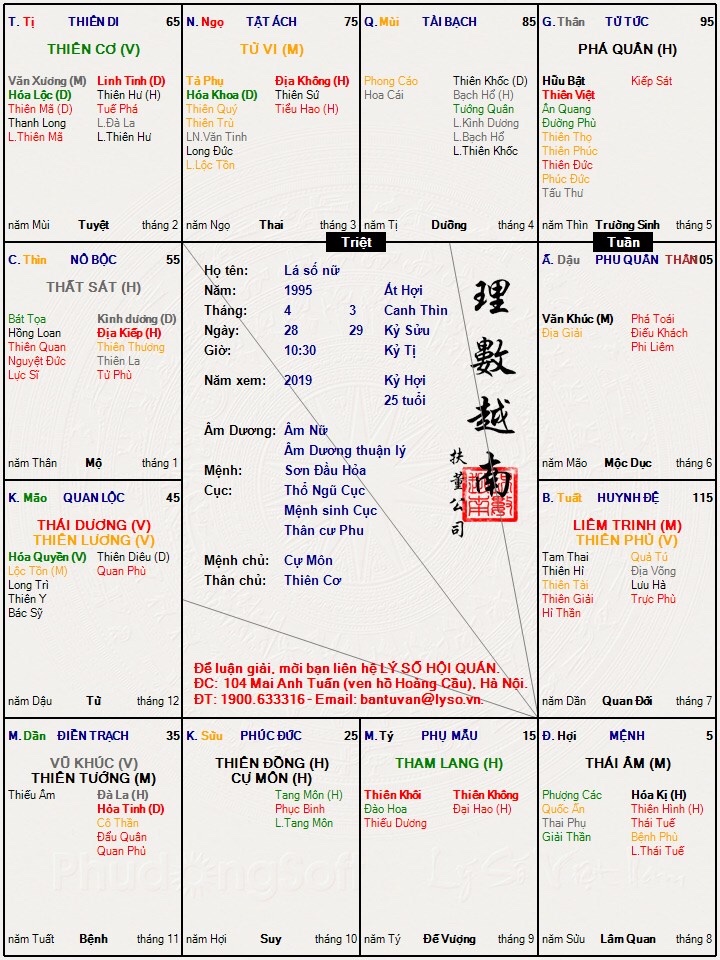 T. Tị THIÊN DI 65
THIÊN CƠ (V)
Văn Xương (M) Linh Tinh (D)
Hóa Lộc (D) Thiên Hư (H)
Thiên Mã (D) Tuế Phá
Thanh Long L.Đà La
L.Thiên Mã L.Thiên Hư
năm Mùi Tuyệt tháng 2
N. Ngọ TẬT ÁCH 75
TỬ VI (M)
Tả Phụ Địa Không (H)
Hóa Khoa (D) Thiên Sứ
Thiên Quý Tiểu Hao (H)
Thiên Trù
LN.Văn Tinh
Long Đức
L.Lộc Tồn
năm Ngọ Thai tháng 3
Q. Mùi TÀI BẠCH 85
Phong Cáo Thiên Khốc (D)
Hoa Cái Bạch Hổ (H)
Tướng Quân
L.Kình Dương
L.Bạch Hổ
L.Thiên Khốc
năm Tị Dưỡng tháng 4
G. Thân TỬ TỨC 95
PHÁ QUÂN (H)
Hữu Bật Kiếp Sát
Thiên Việt
Ân Quang
Đường Phù
Thiên Thọ
Thiên Phúc
Thiên Đức
Phúc Đức
Tấu Thư
năm Thìn Trường Sinh tháng 5
Triệt
Tuần
C. Thìn NÔ BỘC 55
THẤT SÁT (H)
Bát Tọa Kình dương (D)
Hồng Loan Địa Kiếp (H)
Thiên Quan Thiên Thương
Nguyệt Đức Thiên La
Lực Sĩ Tử Phù
năm Thân Mộ tháng 1
Họ tên: Lá số nữ
Năm: 1995 Ất Hợi
Tháng: 4 3 Canh Thìn
Ngày: 28 29 Kỷ Sửu
Giờ: 10:30 Kỷ Tị
Năm xem: 2019 Kỷ Hợi
25 tuổi
Âm Dương: Âm Nữ
Âm Dương thuận lý
Mệnh: Sơn Đầu Hỏa
Cục: Thổ Ngũ Cục
Mệnh sinh Cục
Thân cư Phu
Mệnh chủ: Cự Môn
Thân chủ: Thiên Cơ
理數越南
扶董公司
Để luận giải, mời bạn liên hệ LÝ SỐ HỘI QUÁN.
ĐC: 104 Mai Anh Tuấn (ven hồ Hoàng Cầu), Hà Nội.
ĐT: 1900.633316 - Email: bantuvan@lyso.vn.
Ấ. Dậu PHU QUÂN THÂN 105
Văn Khúc (M) Phá Toái
Địa Giải Điếu Khách
Phi Liêm
năm Mão Mộc Dục tháng 6
K. Mão QUAN LỘC 45
THÁI DƯƠNG (V)
THIÊN LƯƠNG (V)
Hóa Quyền (V) Thiên Diêu (D)
Lộc Tồn (M) Quan Phù
Long Trì
Thiên Y
Bác Sỹ
năm Dậu Tử tháng 12
B. Tuất HUYNH ĐỆ 115
LIÊM TRINH (M)
THIÊN PHỦ (V)
Tam Thai Quả Tú
Thiên Hỉ Địa Võng
Thiên Tài Lưu Hà
Thiên Giải Trực Phù
Hỉ Thần
năm Dần Quan Đới tháng 7
M. Dần ĐIỀN TRẠCH 35
VŨ KHÚC (V)
THIÊN TƯỚNG (M)
Thiếu Âm Đà La (H)
Hỏa Tinh (D)
Cô Thần
Đẩu Quân
Quan Phủ
năm Tuất Bệnh tháng 11
K. Sửu PHÚC ĐỨC 25
THIÊN ĐỒNG (H)
CỰ MÔN (H)
Tang Môn (H)
Phục Binh
L.Tang Môn
năm Hợi Suy tháng 10
M. Tý PHỤ MẪU 15
THAM LANG (H)
Thiên Khôi Thiên Không
Đào Hoa Đại Hao (H)
Thiếu Dương
năm Tý Đế Vượng tháng 9
Đ. Hợi MỆNH 5
THÁI ÂM (M)
Phượng Các Hóa Kị (H)
Quốc Ấn Thiên Hình (H)
Thai Phụ Thái Tuế
Giải Thần Bệnh Phù
L.Thái Tuế
năm Sửu Lâm Quan tháng 8